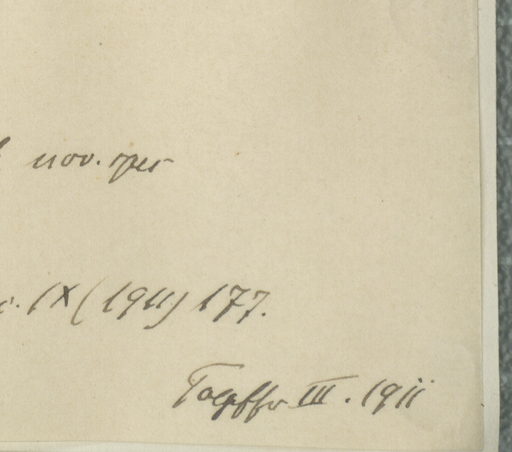 nov. spec
. IX (1911) 177.
Toepffer III. 1911